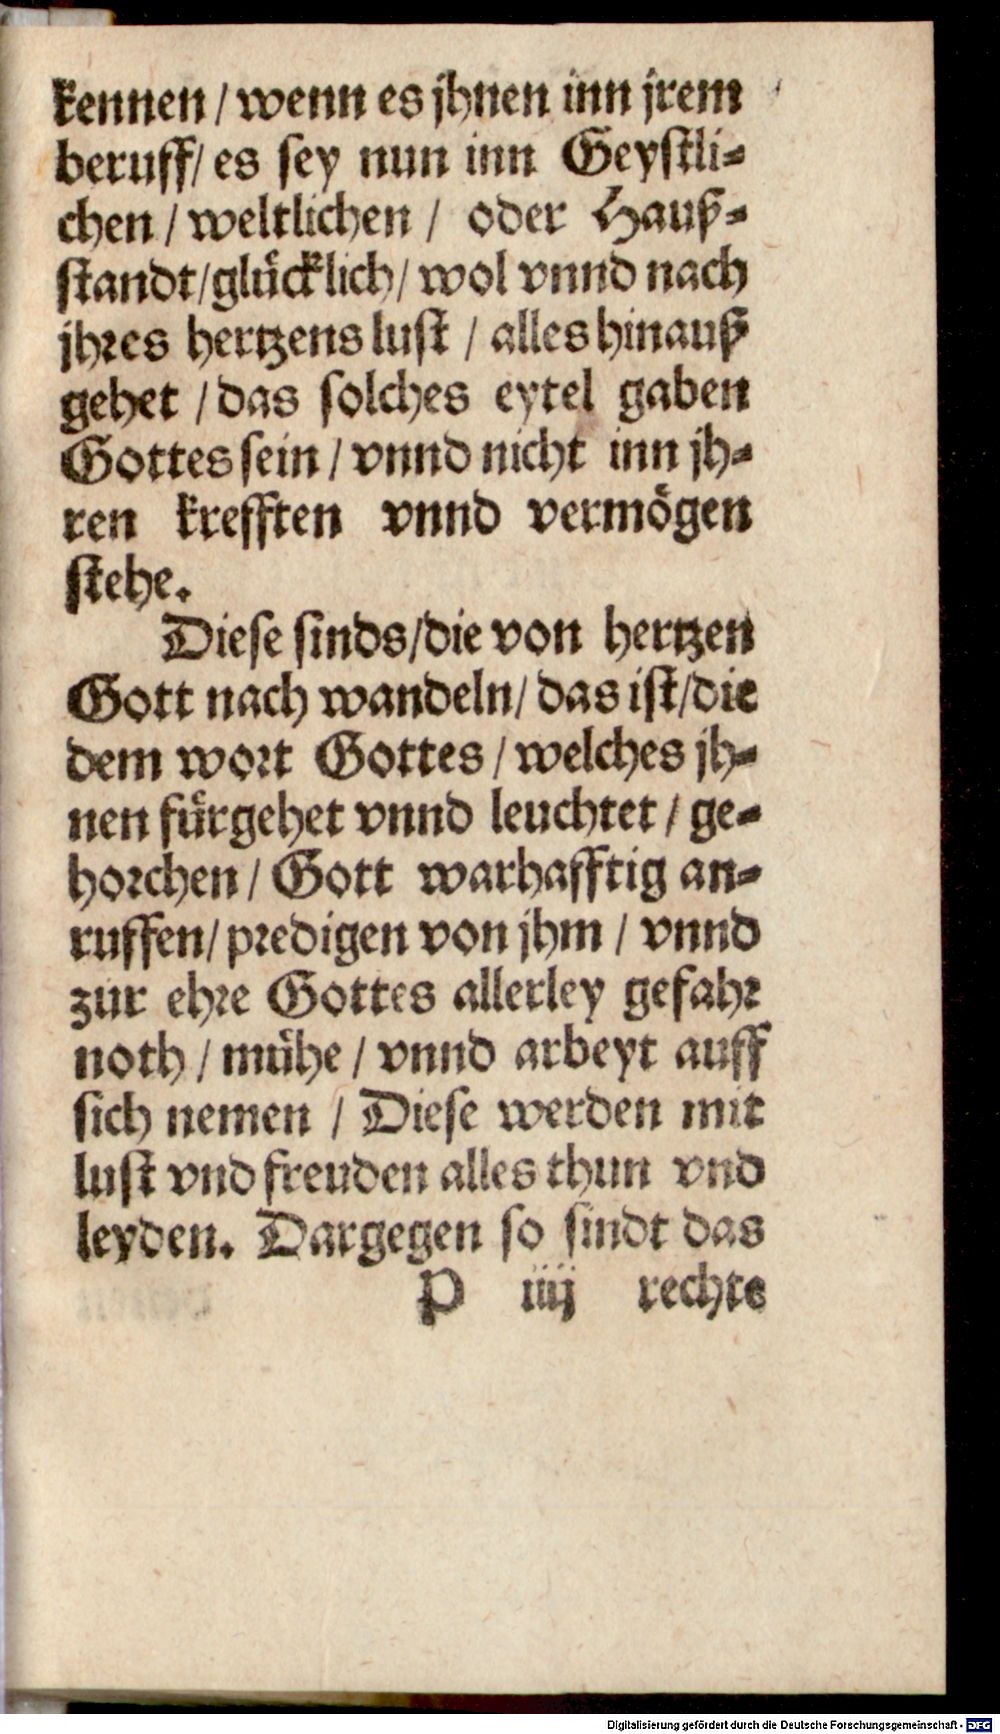 kennen / wenn es jhnen inn jrem
beruff / es sey nun inn Geystli-
chen / weltlichen / oder Hauß-
standt / glücklich / wol vnnd nach
jhres hertzens lust / alles hinauß
gehet / das solches eytel gaben
Gottes sein / vnnd nicht inn jh-
ren krefften vnnd vermögen
stehe.
Diese sinds / die von hertzen
Gott nach wandeln / das ist / die
dem wort Gottes / welches jh-
nen fürgehet vnnd leuchtet / ge-
horchen / Gott warhafftig an-
ruffen / predigen von jhm / vnnd
zur ehre Gottes allerley gefahr
noth / mühe / vnnd arbeyt auff
sich nemen / Diese werden mit
lust vnd freuden alles thun vnd
leyden. Dargegen so sindt das
P iiij rechte
Digitalisierung gefördert durch die Deutsche Forschungsgemeinschaft - DFG